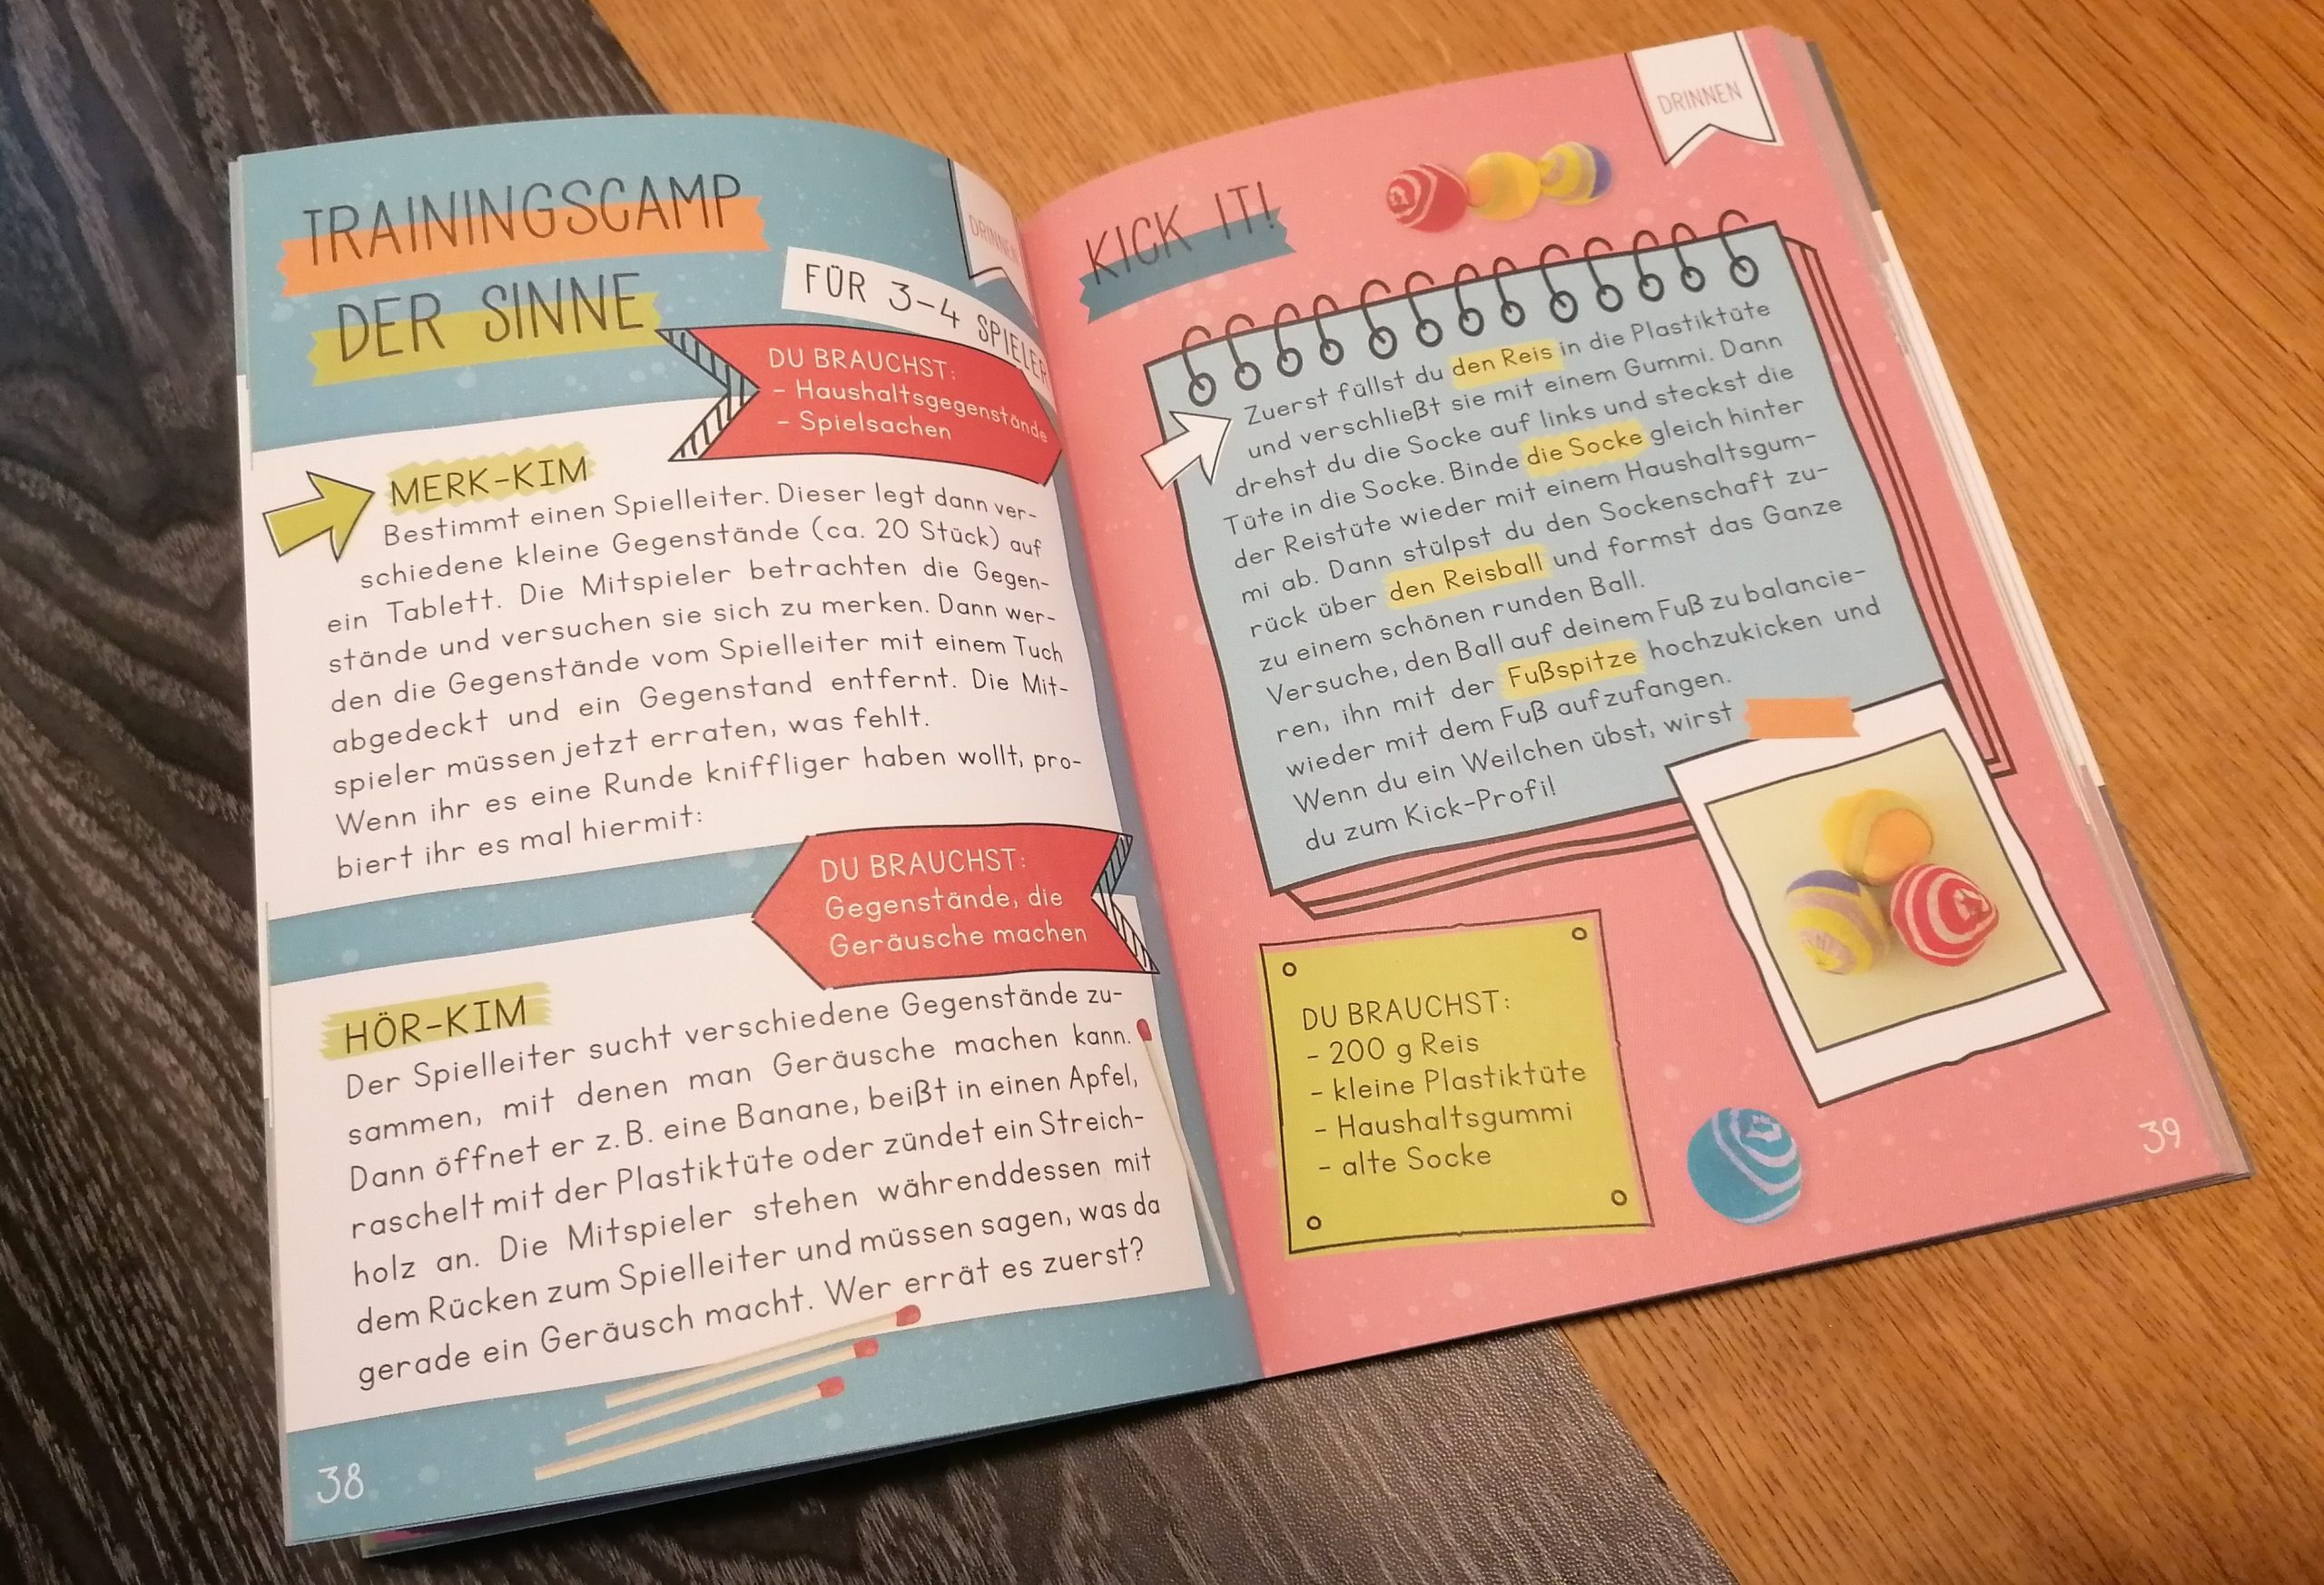 TRAININGSCAMP
DER SINNE
DRINNEN
FÜR 3-4 SPIELER
DU BRAUCHST:
- Haushaltsgegenstände
- Spielsachen
MERK-KIM
Bestimmt einen Spielleiter. Dieser legt dann ver-
schiedene kleine Gegenstände (ca. 20 Stück) auf
ein Tablett. Die Mitspieler betrachten die Gegen-
stände und versuchen sie sich zu merken. Dann wer-
den die Gegenstände vom Spielleiter mit einem Tuch
abgedeckt und ein Gegenstand entfernt. Die Mit-
spieler müssen jetzt erraten, was fehlt.
Wenn ihr es eine Runde kniffliger haben wollt, pro-
biert ihr es mal hiermit:
DU BRAUCHST:
Gegenstände, die
Geräusche machen
HÖR-KIM
Der Spielleiter sucht verschiedene Gegenstände zu-
sammen, mit denen man Geräusche machen kann.
Dann öffnet er z. B. eine Banane, beißt in einen Apfel,
raschelt mit der Plastiktüte oder zündet ein Streich-
holz an. Die Mitspieler stehen währenddessen mit
dem Rücken zum Spielleiter und müssen sagen, was da
gerade ein Geräusch macht. Wer errät es zuerst?
38
DRINNEN
KICK IT!
Zuerst füllst du den Reis in die Plastiktüte
und verschließt sie mit einem Gummi. Dann
drehst du die Socke auf links und steckst die
Tüte in die Socke. Binde die Socke gleich hinter
der Reistüte wieder mit einem Haushaltsgum-
mi ab. Dann stülpst du den Sockenschaft zu-
rück über den Reisball und formst das Ganze
zu einem schönen runden Ball.
Versuche, den Ball auf deinem Fuß zu balancie-
ren, ihn mit der Fußspitze hochzukicken und
wieder mit dem Fuß aufzufangen.
Wenn du ein Weilchen übst, wirst
du zum Kick-Profi!
DU BRAUCHST:
- 200 g Reis
- kleine Plastiktüte
- Haushaltsgummi
- alte Socke
39